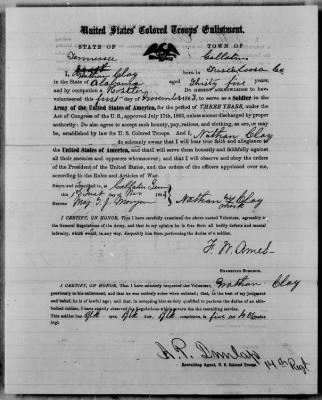 United States' Colored Troops' Enlistment.
STATE OF TOWN OF
Tennessee Gallatin
I, Nathan Clay born in Tuscaloosa Co
in the State of Alabama aged Thirty five years,
and by occupation a DO HEREBY ACKNOWLEDGE to have
volunteered this first day of November 1863, to serve as a Soldier in the
Army of the United States of America, for the period of THREE YEARS, under the
Act of Congress of the U.S., approved July 17th, 1862, unless sooner discharged by proper
authority: Do also agree to accept such bounty, pay, rations, and clothing, as are, or may
be, established by law for U. S. Colored Troops. And I, Nathan Clay
do solemnly swear that I will bear true faith and allegiance to
the United States of America, and that I will serve them honestly and faithfully against
all their enemies and opposers whomsoever; and that I will observe and obey the orders
of the President of the United States, and the orders of the officers appointed over me,
according to the Rules and Articles of War.
Sworn and subscribed to, at Gallatin Tenn
this first day of Nov 1863
BEFORE Maj T. J. Morgan Nathan Clay
mark
I CERTIFY, ON HONOR, That I have carefully examined the above named Volunteer, agreeably to
the General Regulations of the Army, and that in my opinion he is free from all bodily defects and mental
infirmity, which would, in any way, disqualify him from performing the duties of a soldier.
F. W. Ames
EXAMINING SURGEON.
I CERTIFY, ON HONOR, That I have minutely inspected the Volunteer, Nathan Clay
previously to his enlistment, and that he was entirely sober when enlisted; that, to the best of my judgment
and belief, he is of lawful age; and that, in accepting him as duly qualified to perform the duties of an able-
bodied soldier, I have strictly observed the Regulations which govern the recruiting service.
This soldier has Blk eyes, Blk hair, Blk complexion, is five feet inches
high
A. P. Dunlap
Recruiting Agent, U. S. Colored Troops
14th Regt